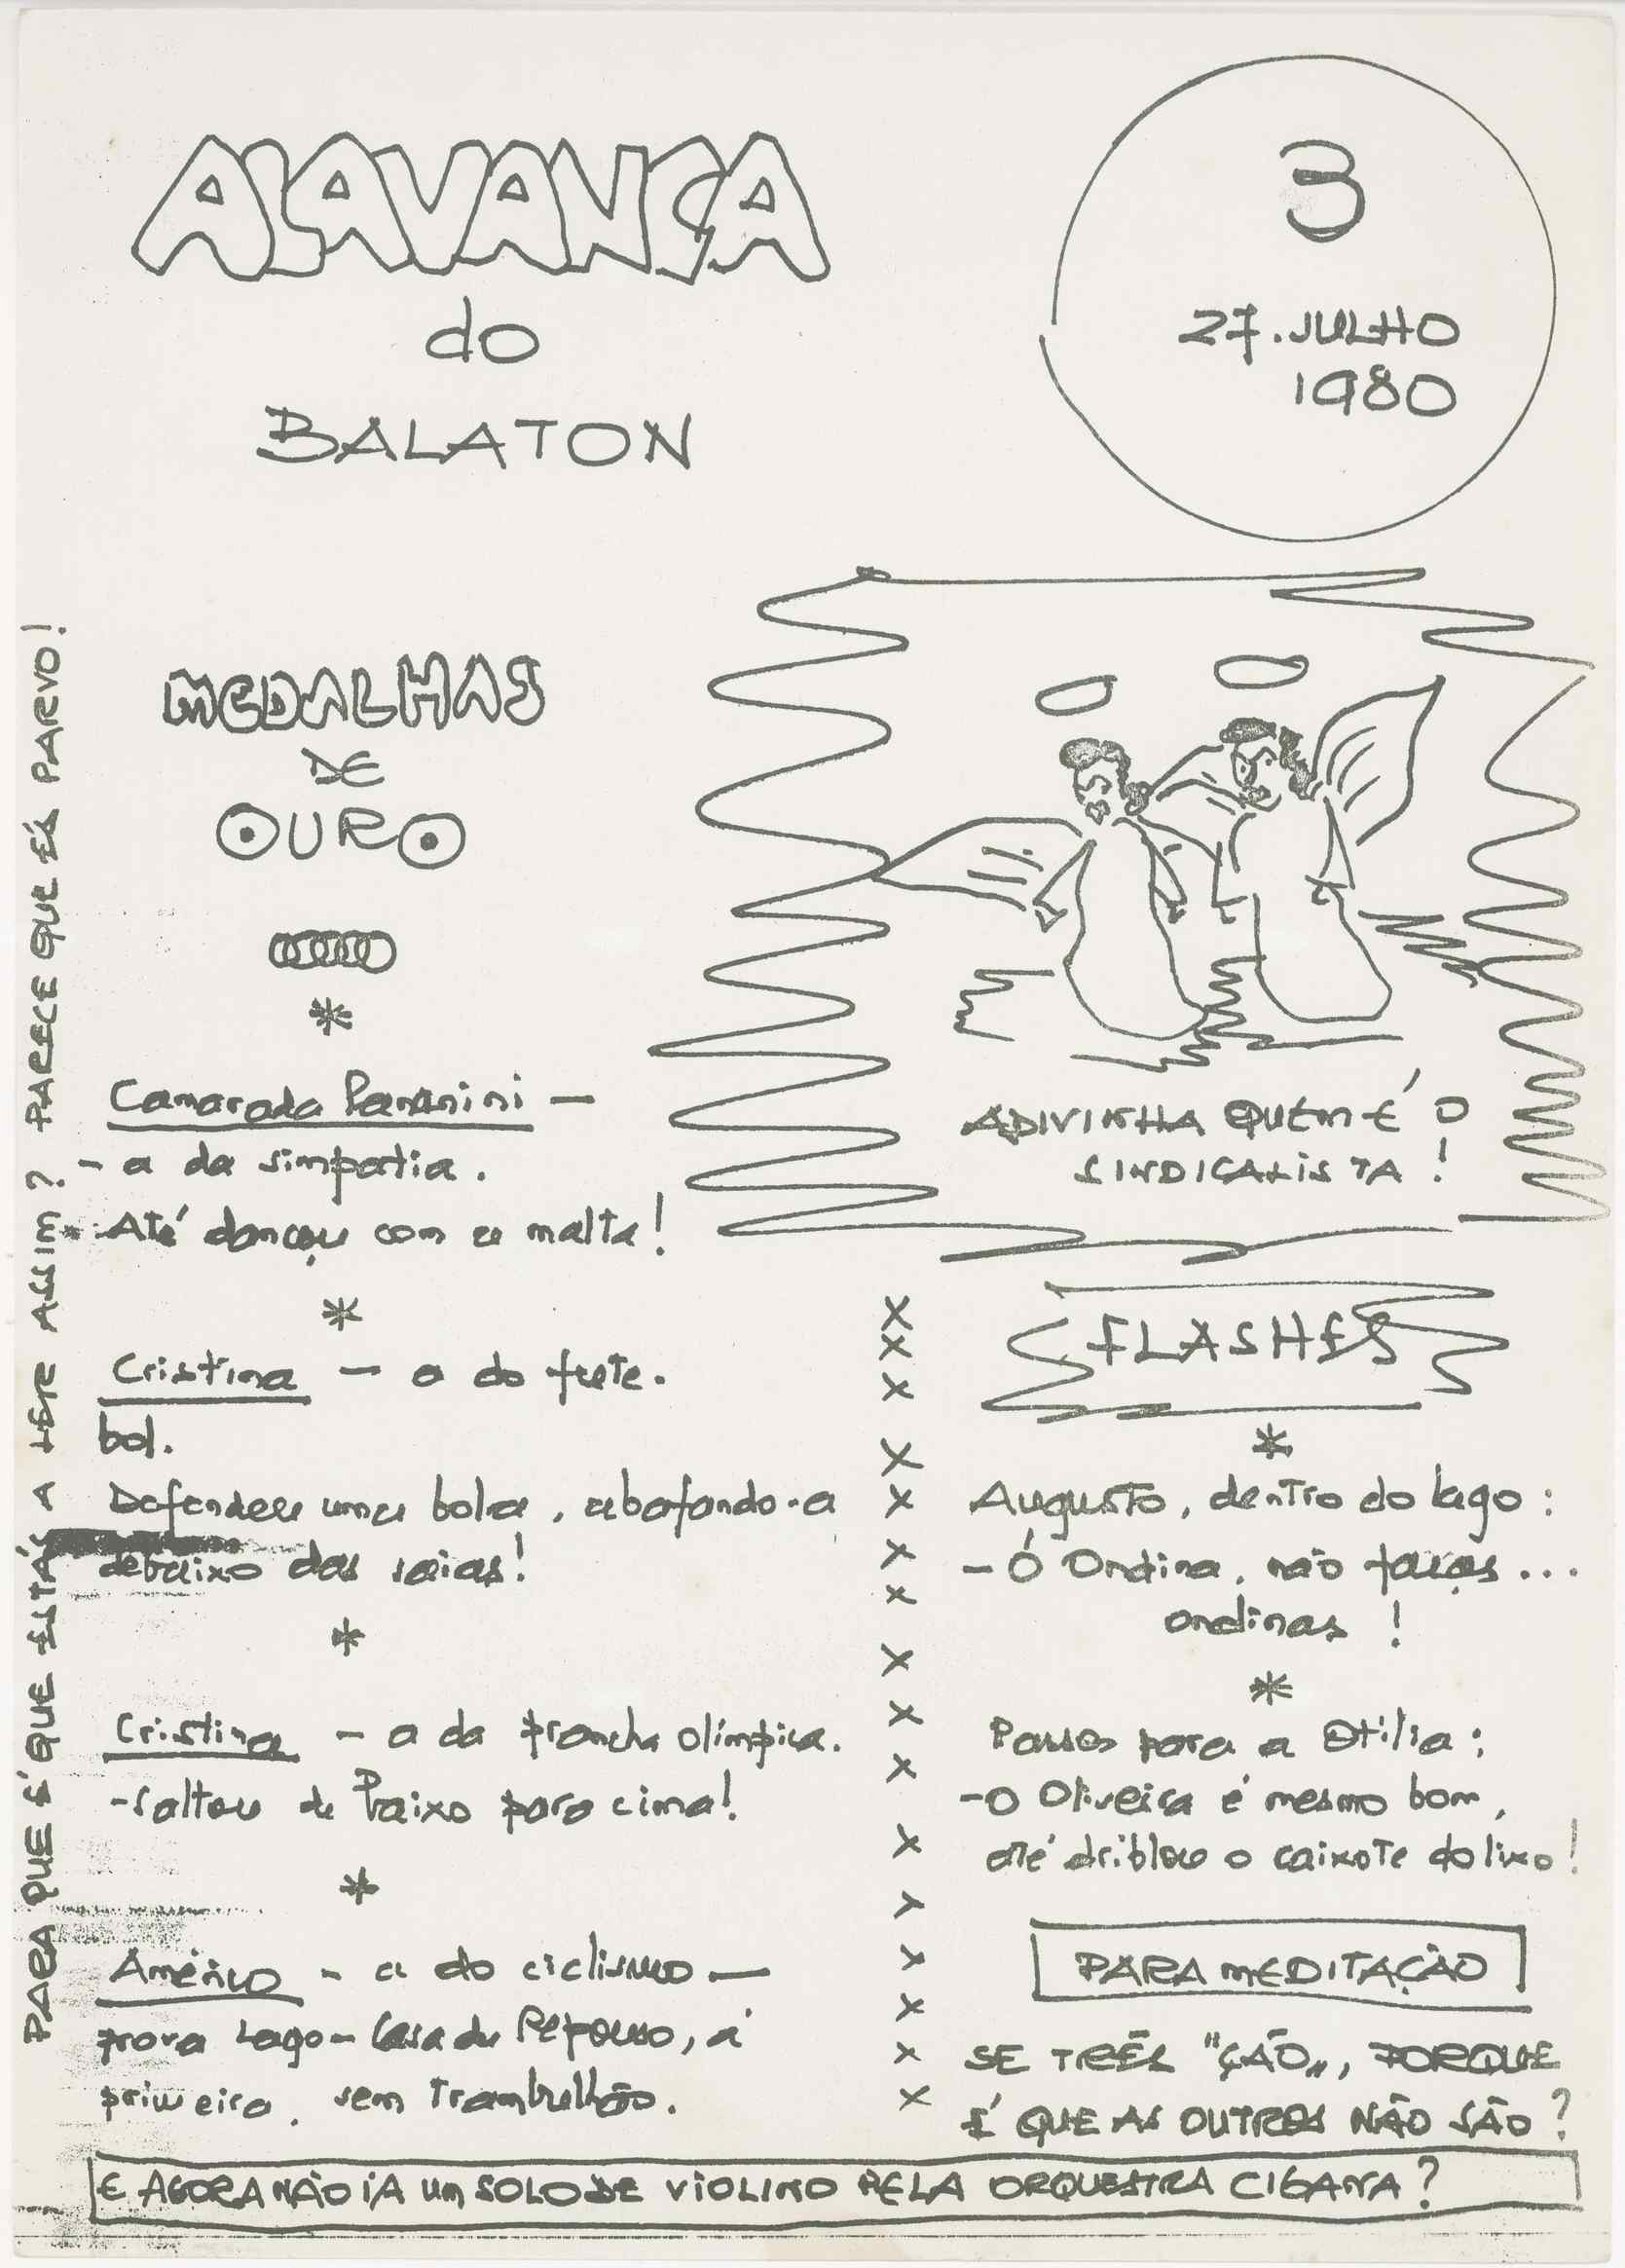 ALAVANCA
do
BALATON
3
27.JULHO
1980
MEDALHAS
DE
OURO
Camarada Pananini —
- a da simpatia.
Até dançou com a malta!
Cristina — a do frete.
bol.
Defendeu uma bola, abafando-a
debaixo das saias!
Cristina - a da prancha olímpica.
- saltou de baixo para cima!
Américo - a do ciclismo —
prova Lago - Casa de Repouso, à
primeira, sem trambulhão.
ADIVINHA QUEM É O
SINDICALISTA!
FLASHES
Augusto, dentro do lago:
- Ó Ondina, não faças...
ondinas!
Passos para a Otília:
- O Oliveira é mesmo bom,
até driblou o caixote do lixo!
PARA MEDITAÇÃO
SE TRÊS "ÇÃO", PORQUE
É QUE AS OUTRAS NÃO SÃO?
E AGORA NÃO IA UM SOLO DE VIOLINO PELA ORQUESTRA CIGANA?
PARA QUE É QUE ESTÁS A LER ASSIM? PARECE QUE ÉS PARVO!